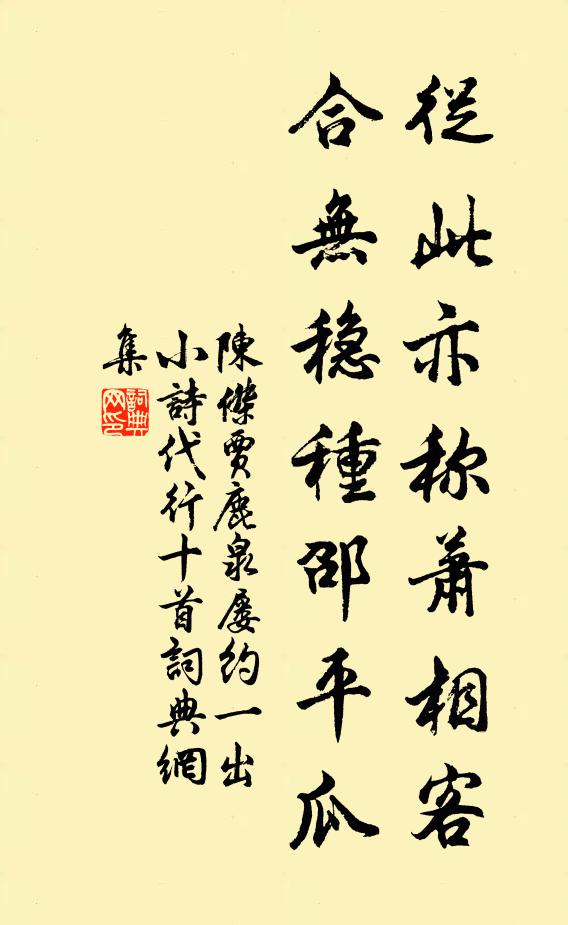 從此亦称蕭相客
合無穩種邵平瓜
陳傑賈鹿泉屢約一出
小詩代行十首詞典網
集
詞典
网印